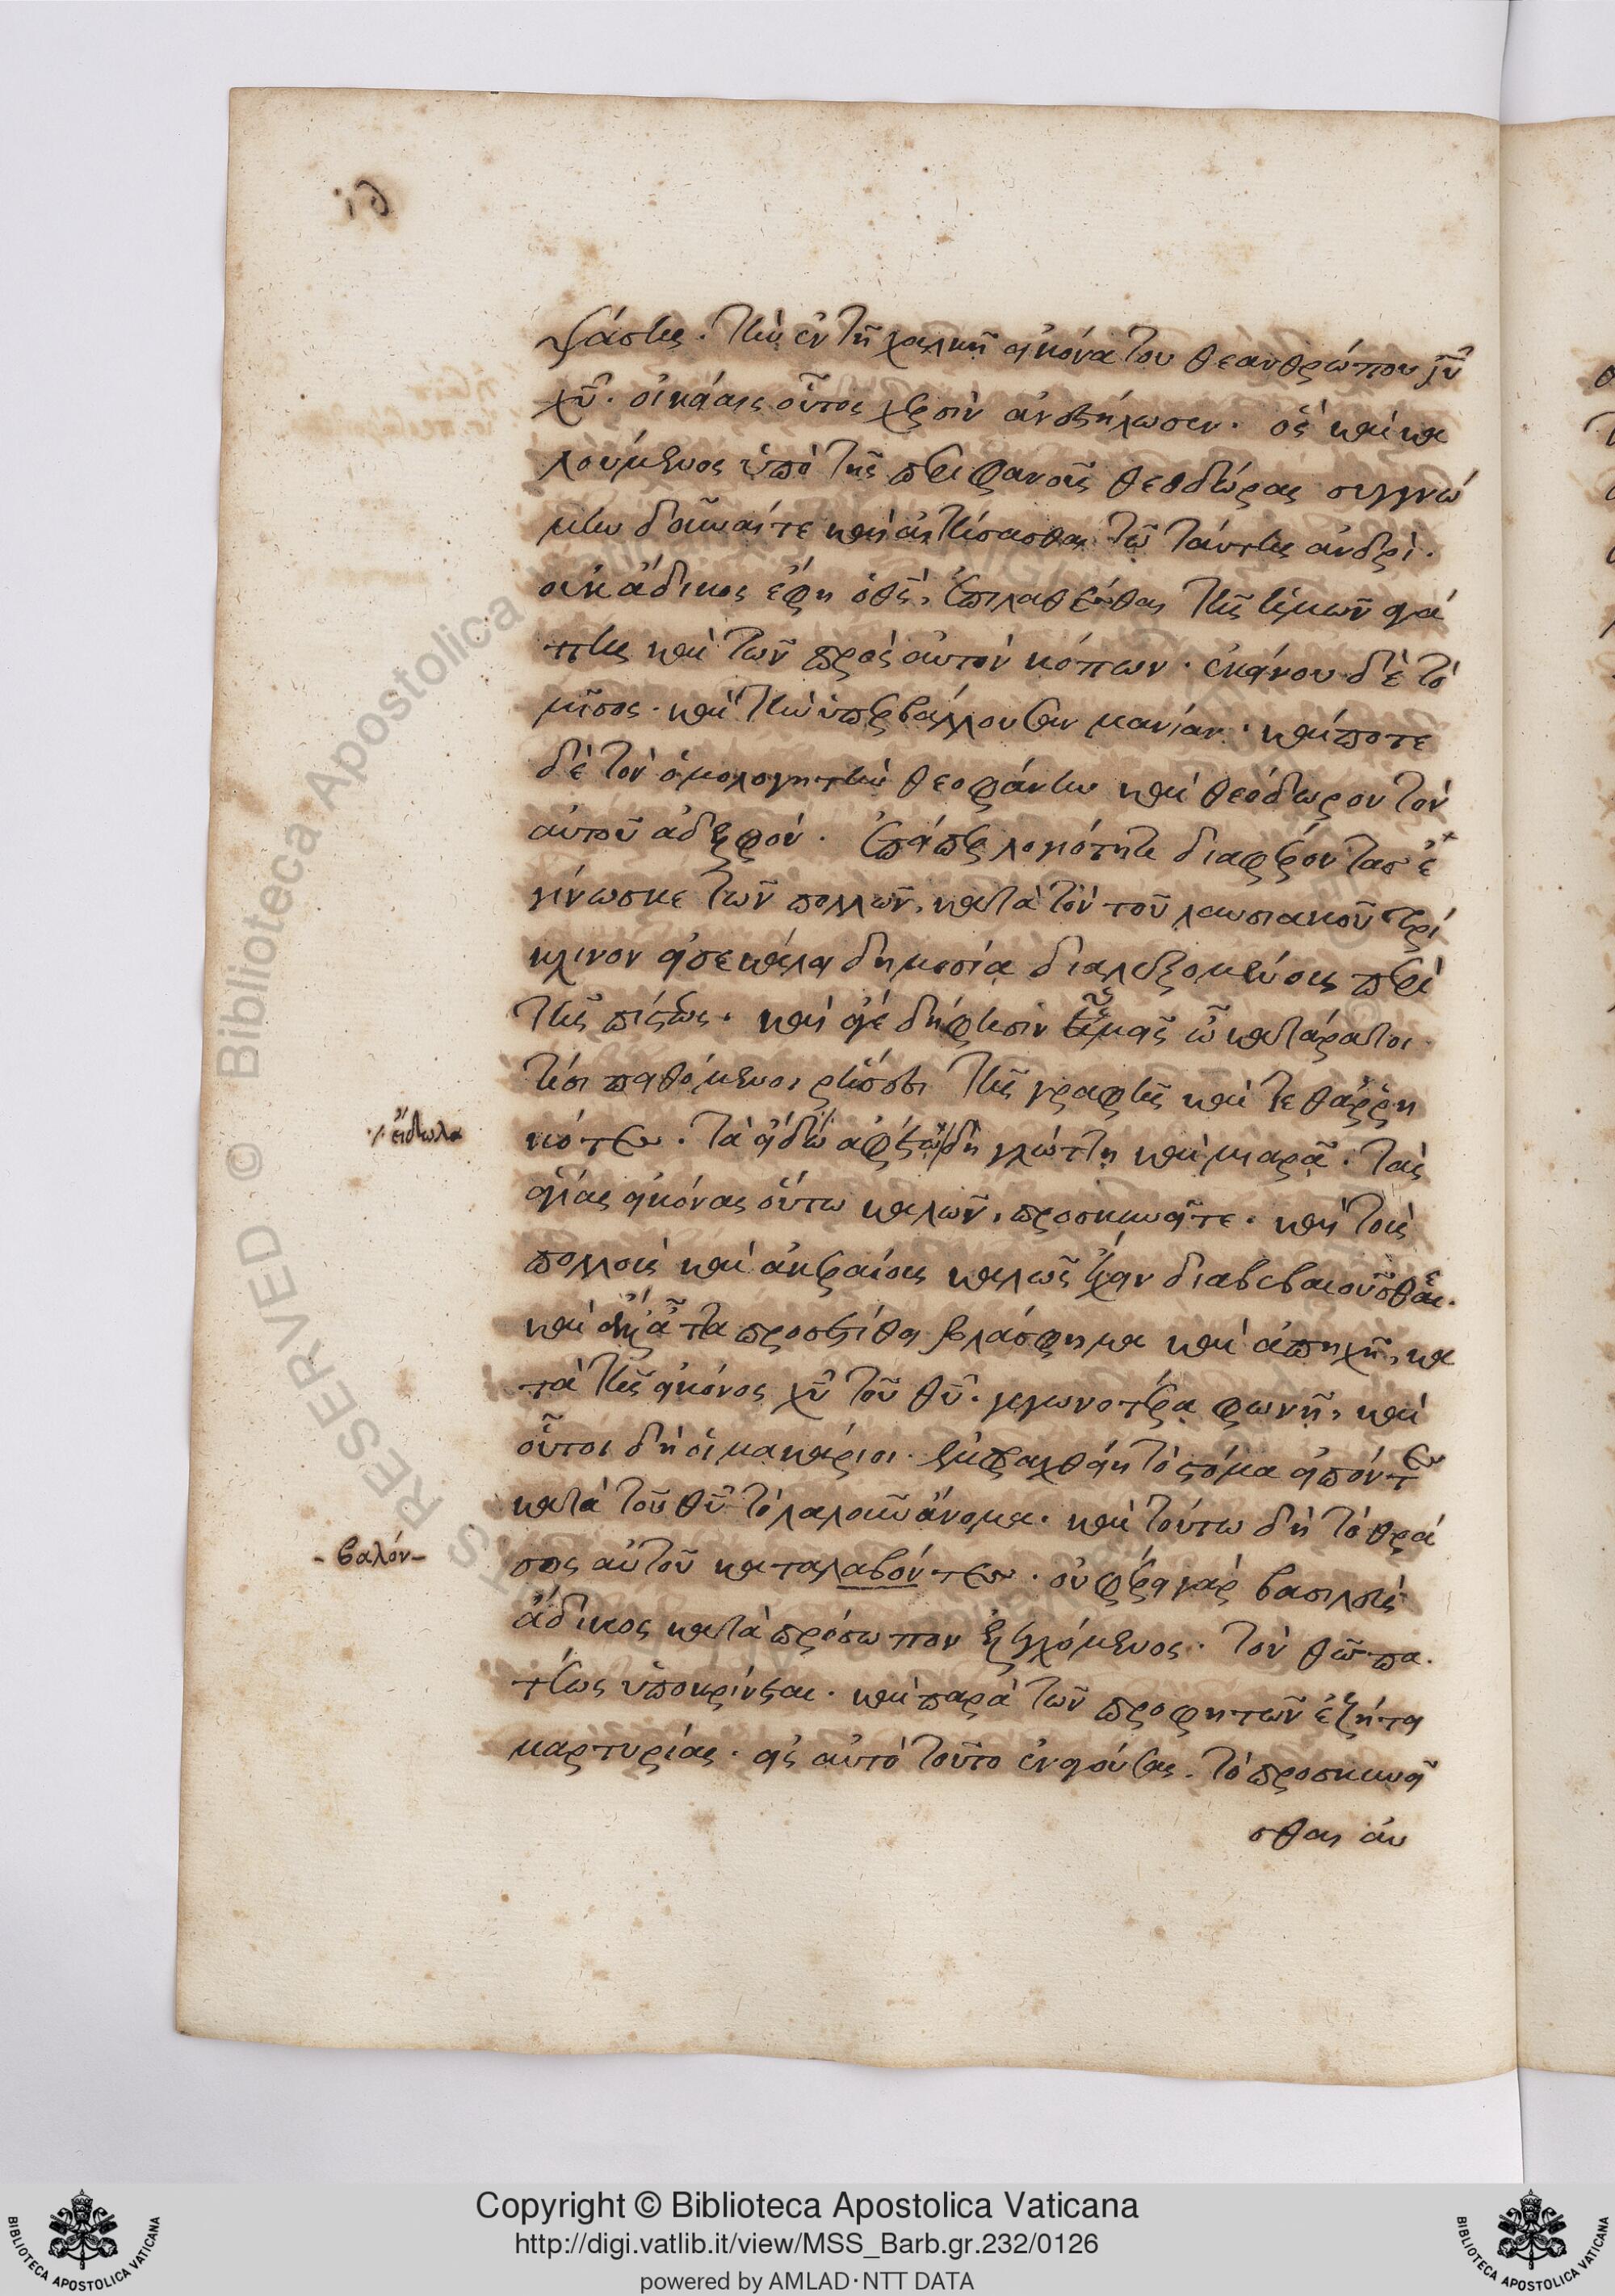 ψάσης. τὴν ἐν τῇ χαλκῇ εἰκόνα τοῦ θεανθρώπου ἰῦ
χῦ. οἰκείαις οὗτος χερσὶν ἀνεστήλωσεν. ὃς καὶ κα
λούμενος ὑπὸ τῆς περιφανοῦς θεοδώρας συγγνώ
μην δοῦναί τε καὶ αἰτήσασθαι τῷ ταύτης ἀνδρί.
οὐκ ἄδικος ἔφη ὁ θς, ἐπιλαθέσθαι τῆς ἡμῶν
καὶ τῶν πρὸς αὐτὸν κόπων. ἐκείνου δὲ τὸ
μῖσος. καὶ τὴν ὑπερβάλλουσαν μανίαν. καί ποτε
δὲ τὸν ὁμολογητὴν θεοφάνην καὶ θεόδωρον τὸν
αὐτοῦ ἀδελφόν. ἐπείπερ λογιότητι διαφέροντας ἐ
γίνωσκε τῶν πολλῶν, κατὰ τὸν τοῦ λαυσιακοῦ τρί
κλινον εἰσεκάλει δημοσίᾳ διαλεξομένους περὶ
τῆς πίστεως. καὶ εἰ δή φησιν ὑμεῖς ὦ κατάρατοι
τίσι πειθόμενοι ῥήσεσι τῆς γραφῆς καὶ τεθαρρη
κότες. τὰ εἴδω ἀφειδῆ γλώττῃ καὶ μιαρᾷ. τὰς
θείας εἰκόνας οὕτω καλῶν, προσκυνεῖτε. καὶ τοῖς
πολλοῖς καὶ ἀκεραίοις καλῶς ἔχειν διαβεβαιοῦσθαι.
καὶ ἄττα προστίθει βλάσφημα καὶ ἀπηχῆ, κα
τὰ τῆς εἰκόνος χῦ τοῦ θῦ. γεγωνοτέρᾳ φωνῇ, καὶ
οὗτοι δὴ οἱ μακάριοι. ἐμφραχθείη τὸ στόμα εἰπόντες
κατὰ τοῦ θῦ τὸ λαλοῦν ἄνομα. καὶ τούτῳ δὴ τὸ θρά
σος αὐτοῦ καταλαβόντες. οὐ φέρει γὰρ βασιλεὺς
ἄδικος κατὰ πρόσωπον ἐξελεγχόμενος. τὸν
ὑποκρίνεται. καὶ παρὰ τῶν προφητῶν ἐζήτει
μαρτυρίας. εἰς αὐτὸ τοῦτο ἐναγούσας. τὸ προσκυνεῖ
σθαι
·/· εἴδωλα
- βαλόν -
Copyright © Biblioteca Apostolica Vaticana
http://digi.vatlib.it/view/MSS_Barb.gr.232/0126
powered by AMLAD·NTT DATA